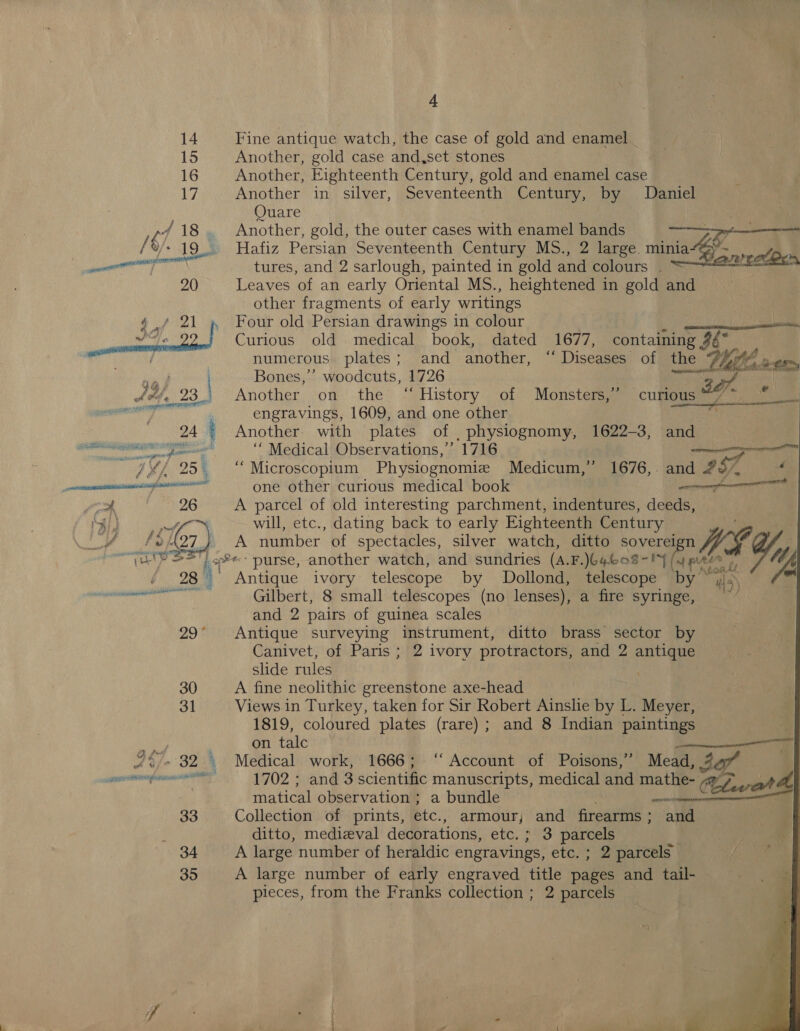 4
14 Fine antique watch, the case of gold and enamel
15 Another, gold case and,set stones
16 Another, Eighteenth Century, gold and enamel case
17 Another in silver, Seventeenth Century, by Daniel
Quare
18 Another, gold, the outer cases with enamel bands
19 Hafiz Persian Seventeenth Century MS., 2 large minia-
tures, and 2 sarlough, painted in gold and colours
20 Leaves of an early Oriental MS., heightened in gold and
other fragments of early writings
21 Four old Persian drawings in colour
22 Curious old medical book, dated 1677, containing
numerous plates; and another, “Diseases of the
Bones,” woodcuts, 1726
23 Another on the “History of Monsters,” curious
engravings, 1609, and one other
24 Another with plates of physiognomy, 1622-3, and
“Medical Observations,” 1716
25 “Microscopium Physiognomiæ Medicum,” 1676, and
one other curious medical book
26 A parcel of old interesting parchment, indentures, deeds,
will, etc., dating back to early Eighteenth Century
27 A number of spectacles, silver watch, ditto sovereign
purse, another watch, and sundries (A.F.)
28 Antique ivory telescope by Dollond, telescope by
Gilbert, 8 small telescopes (no lenses), a fire syringe,
and 2 pairs of guinea scales
29 Antique surveying instrument, ditto brass sector by
Canivet, of Paris; 2 ivory protractors, and 2 antique
slide rules
30 A fine neolithic greenstone axe-head
31 Views in Turkey, taken for Sir Robert Ainslie by L. Meyer,
1819, coloured plates (rare); and 8 Indian paintings
on talc
32 Medical work, 1666; “Account of Poisons,” Mead,
1702; and 3 scientific manuscripts, medical and mathe-
matical observation; a bundle
33 Collection of prints, etc., armour, and firearms; and
ditto, mediæval decorations, etc.; 3 parcels
34 A large number of heraldic engravings, etc.; 2 parcels
35 A large number of early engraved title pages and tail-
pieces, from the Franks collection; 2 parcels